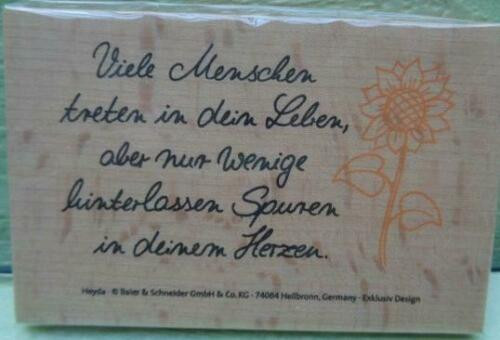 Viele Menschen
treten in dein Leben,
aber nur wenige
hinterlassen Spuren
in deinem Herzen.
Heyda · © Baier & Schneider GmbH & Co. KG · 74064 Heilbronn, Germany · Exklusiv Design